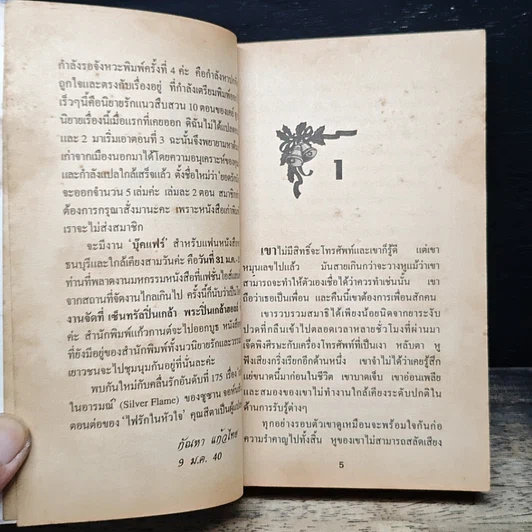 กำลังรอจังหวะพิมพ์ครั้งที่ 4 ค่ะ คือกำลังหาปก
ถูกใจและตรงกับเรื่องอยู่ ที่กำเตรียมพิมพ์
เร็วๆนี้คือนิยายรักแนวสืบสวน 10 ตอนของ
นิยายชุดนี้เมื่อแรกที่เคยออก ดิฉันไม่ได้
และ 2 มาเริ่มเอาตอนที่ 3 ฉะนั้นจึงพยายามหา
เก่าจากเมืองนอกมาได้โดยความอนุเคราะห์ของ
และกำลังแปลใกล้เสร็จแล้ว ตั้งชื่อใหม่ว่า
จะออกจำนวน 5 เล่มค่ะ เล่มละ 2 ตอน สมาชิก
ต้องการกรุณาสั่งมานะคะ เพราะหนังสือเก่า
เราจะไม่ส่งสมาชิก
จะมีงาน 'บุ๊คแฟร์' สำหรับแฟนหนังสือ
ธนบุรีและใกล้เคียงสามวันค่ะ คือวันที่ 31 ม.ค.
ท่านที่พลาดงานมหกรรมหนังสือที่แฟชั่นไอส์
จากสถานที่จัดงานไกลเกินไป ครั้งนี้ก็นับว่าเป็น
งานจัดที่ เซ็นทรัลปิ่นเกล้า พระปิ่นเกล้า
ค่ะ สำนักพิมพ์แก้วกานต์จะไปออกบูธ หนังสือ
ที่ยังมีอยู่ของสำนักพิมพ์ทั้งแนวนิยายรักและ
เยาวชนจะไปชุมนุมกันอยู่ที่นั่นละค่ะ
พบกันใหม่กับคลื่นรักอันดับที่ 175 เรื่อง
ในอารมณ์' (Silver Flame) ของซูซาน
ตอนต่อของ 'ไฟรักในหัวใจ' คุณสีตาเป็นผู้
กัณหา แก้วไทย
9 ม.ค. 40
1
เขาไม่มีสิทธิ์จะโทรศัพท์และเขาก็รู้ดี แต่เขา
หมุนเลขไปแล้ว มันสายเกินกว่าจะวางหูแม้ว่าเขา
สามารถจะทำให้ตัวเองเชื่อได้ว่าควรทำเช่นนั้น เขา
ถือว่าเธอเป็นเพื่อน และคืนนี้เขาต้องการเพื่อนสักคน
เขารวบรวมสมาธิได้เพียงน้อยนิดจากยาระงับ
ปวดที่กลืนเข้าไปตลอดเวลาหลายชั่วโมงที่ผ่านมา
เจ็ดพิงศีรษะกับเครื่องโทรศัพท์ที่เป็นเงา หลับตา หู
ฟังเสียงกริ่งเรียกอีกด้านหนึ่ง เขาจำไม่ได้ว่าเคยรู้สึก
แย่ขนาดนี้มาก่อนในชีวิต เขาบาดเจ็บ เขาอ่อนเพลีย
และสมองของเขาไม่ทำงานใกล้เคียงระดับปกติใน
ด้านการรับรู้ต่างๆ
ทุกอย่างรอบตัวเขาดูเหมือนจะพร้อมใจกันก่อ
ความรำคาญไปทั้งสิ้น หูของเขาไม่สามารถสลัดเสียง
5